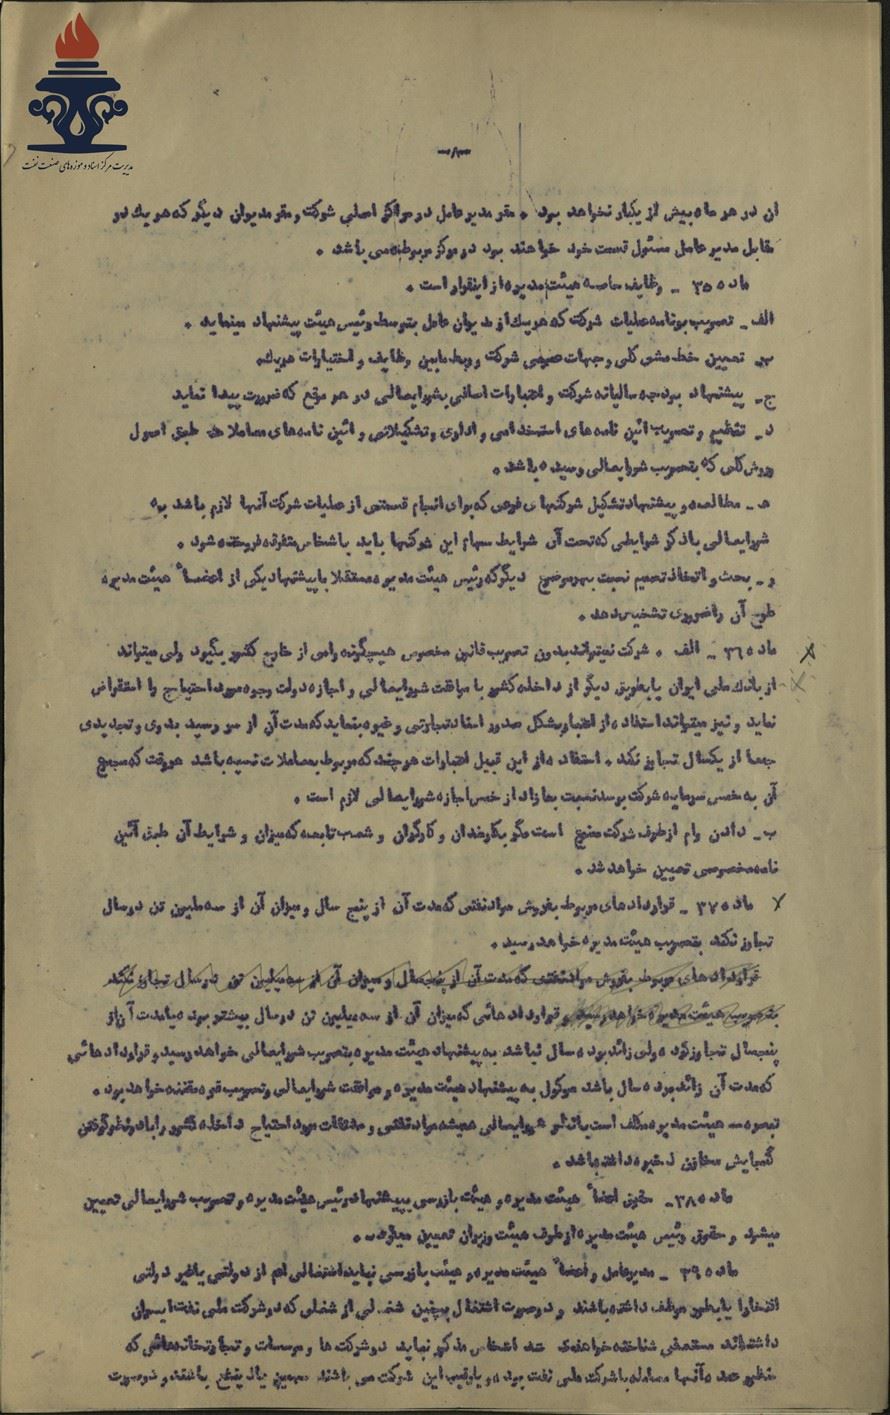 مدیریت مرکز اسناد و موزه‌های صنعت نفت
ان در هر ماه بیش از یکبار نخواهد بود . مقر مدیر عامل در مراکز اصلی شرکت و مقر مدیران دیگر که هر یک در
مقابل مدیر عامل مسئول قسمت خود خواهند بود در مرکز مربوطه می باشد .
ماده ۳۵ ـ وظایف خاصه هیئت مدیره از اینقرار است .
الف ـ تصویب برنامه عملیات شرکت که هر یک از مدیران عامل بتوسط رئیس هیئت پیشنهاد مینماید .
ب ـ تعیین خط مشی کلی و جهات عمومی شرکت و ربط مابین وظایف و اختیارات هر یک
ج ـ پیشنهاد بودجه سالیانه شرکت و اعتبارات اضافی بشورایعالی در هر موقع که ضرورت پیدا نماید
د ـ تنظیم و تصویب ائین نامه های استخدامی و اداری و تشکیلاتی و ائین نامه های معاملات طبق اصول
روش کلی که بتصویب شورایعالی رسیده باشد .
هـ ـ مطالعه و پیشنهاد تشکیل شرکتهای فرعی که برای انجام قسمتی از عملیات شرکت آنها لازم باشد به
شورایعالی با ذکر شرایطی که تحت آن شرایط سهام این شرکتها باید باشخاص متفرقه فروخته شود .
و ـ بحث و اتخاذ تصمیم نسبت بهر موضوع دیگر که رئیس هیئت مدیره مستقلا یا پیشنهاد یکی از اعضاء هیئت مدیره
طرح آن را ضروری تشخیص دهد .
ماده ۳۶ ـ الف . شرکت نمیتواند بدون تصویب قانون مخصوص هیچگونه وامی از خارج کشور بگیرد ولی میتواند
از بانک ملی ایران یا بطریق دیگر از داخله کشور با موافقت شورایعالی و اجازه دولت وجوه مورد احتیاج را استقراض
نماید و نیز میتواند استفاده از اعتبار بشکل صدور اسناد تجارتی و غیره بنماید که مدت آن از سر رسید بدوی و تجدیدی
جمعا از یکسال تجاوز نکند . استفاده از این قبیل اعتبارات هر چند که مربوط بمعاملات نسیه باشد هر وقت که مجموع
آن به خمس سرمایه شرکت برسد نسبت بمازاد از خمس اجازه شورایعالی لازم است .
ب ـ دادن وام از طرف شرکت ممنوع است مگر بکارمندان و کارگران و شعب تابعه که میزان و شرایط آن طبق آئین
نامه مخصوصی تعیین خواهد شد .
ماده ۳۷ ـ قراردادهای مربوط بفروش مواد نفتی که مدت آن از پنج سال و میزان آن از سه ملیون تن در سال
تجاوز نکند بتصویب هیئت مدیره خواهد رسید .
قراردادهای مربوط بفروش مواد نفتی که مدت آن از پنجسال و میزان آن از سه میلیون تن در سال تجاوز نکند
بتصویب هیئت مدیره خواهد رسید و قراردادهائی که میزان آن از سه میلیون تن در سال بیشتر بوده یا مدت آن از
پنجسال تجاوز کرده ولی زائد بر ده سال نباشد به پیشنهاد هیئت مدیره بتصویب شورایعالی خواهد رسید و قراردادهائی
که مدت آن زائد بر ده سال باشد موکول به پیشنهاد هیئت مدیره و موافقت شورایعالی و تصویب قوه مقننه خواهد بود .
تبصره ـ هیئت مدیره مکلف است با نظر شورایعالی همیشه مواد نفتی و مشتقات مورد احتیاج داخله کشور را با در نظر گرفتن
گنجایش مخازن ذخیره داشته باشد .
ماده ۳۸ ـ حقوق اعضاء هیئت مدیره و هیئت بازرسی بپیشنهاد رئیس هیئت مدیره و تصویب شورایعالی تعیین
میشود و حقوق رئیس هیئت مدیره از طرف هیئت وزیران تعیین میگردد .
ماده ۳۹ ـ مدیر عامل و اعضاء هیئت مدیره و هیئت بازرسی نباید اشتغالی اعم از دولتی یا غیر دولتی
افتخارا یا بطور موظف داشته باشند و در صورت اشتغال بچنین شغلی از شغلی که در شرکت ملی نفت ایران
داشته‌اند مستعفی شناخته خواهند شد اشخاص مذکور نباید در شرکت ها و موسسات و تجارتخانه‌هائی که
منظور عمده آنها معامله با شرکت ملی نفت بوده و یا رقیب این شرکت می باشند سهیم یا ذینفع باشند و در صورت